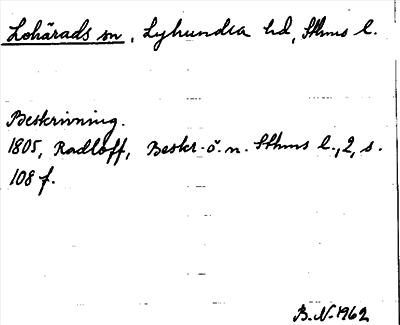 Lohärads sn, Lyhundra hd, Sthms l.
Beskrivning.
1805, Radloff, Beskr. ö. n. Sthms l., 2, s.
108 f.
B. N. 1962